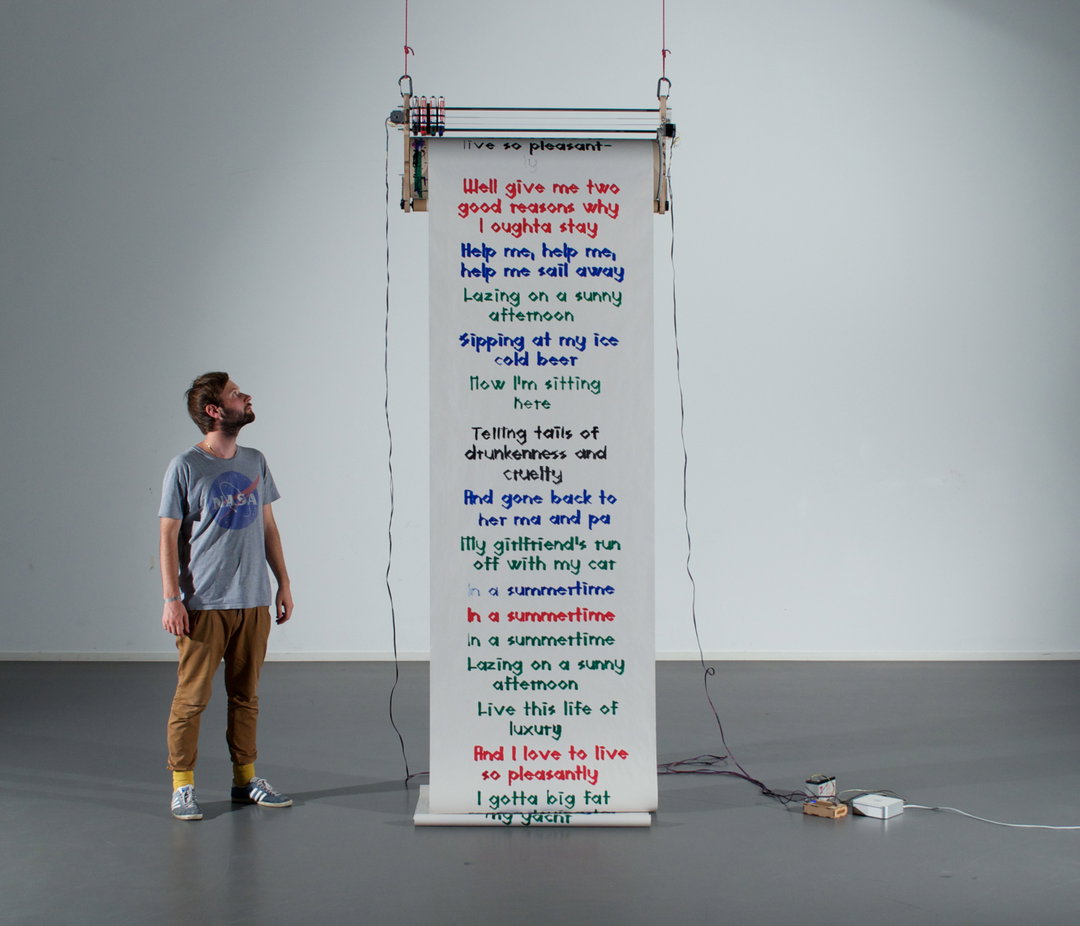 live so pleasant-
ly
Well give me two
good reasons why
I oughta stay
Help me, help me,
help me sail away
Lazing on a sunny
afternoon
Sipping at my ice
cold beer
Now I'm sitting
here
Telling tails of
drunkenness and
cruelty
And gone back to
her ma and pa
My girlfriend's run
off with my car
In a summertime
In a summertime
In a summertime
Lazing on a sunny
afternoon
Live this life of
luxury
And I love to live
so pleasantly
I gotta big fat
my yacht
NASA